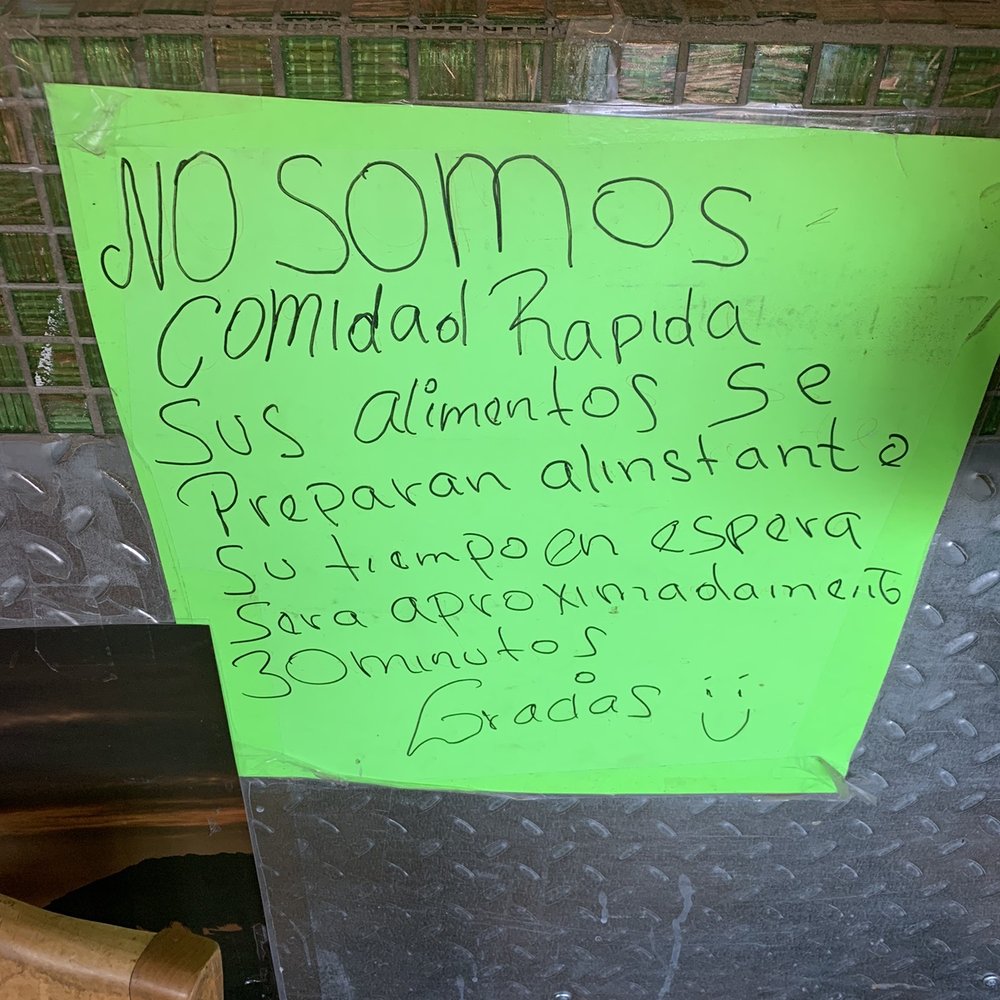 NO SOMOS
COMIDAD RAPIDA
SUS alimentos Se
Preparan alinstante
Su tiempo en espera
Sera aproximadamente
30 minutos
Gracias